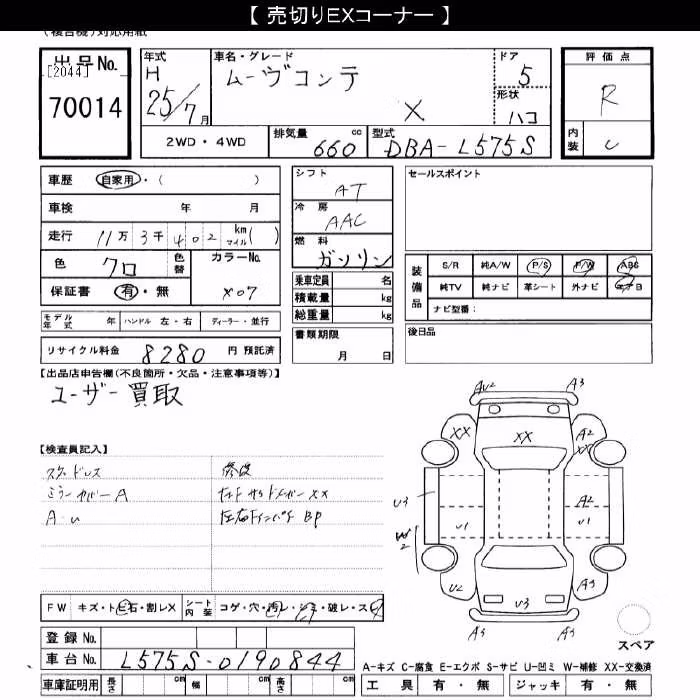 【 売切りEXコーナー 】
出品No.
[2044]
70014
年式
H
25/7月
車名・グレード
ムーヴコンテ
X
ドア
5
形状
ハコ
評価点
R
内装
2WD・4WD
排気量 660 cc
型式 DBA-L575S
車歴 自家用・( )
車検 年 月
走行 11万 3千 402 km マイル( )
色 クロ
色替
カラーNo.
X07
保証書 有・無
モデル年式 年 ハンドル 左・右 ディーラー・並行
リサイクル料金 8280 円 預託済
シフト
AT
冷房
AAC
燃料
ガソリン
乗車定員 名
積載量 kg
総重量 kg
書類期限
月 日
セールスポイント
装備品
S/R 純A/W P/S P/W ABS
純TV 純ナビ 革シート 外ナビ
ナビ型番:
後日品
【出品店申告欄(不良箇所・欠品・注意事項等)】
ユーザー買取
【検査員記入】
スタッドレス
ミラーカバーA
A・U
修復
XX
BP
AU2 A3
XX XX A2 XX
U3 A2
U1 U1
W2
U2 U3 A3
A3 A3
スペア
FW キズ・トビ石・割レX シート内装 コゲ・穴・汚レ・シミ・破レ・スレ
登録No.
車台No. L575S-0190844
車庫証明用 長さ cm 幅 cm 高さ cm
A-キズ C-腐食 E-エクボ S-サビ U-凹ミ W-補修 XX-交換済
工具 有・無 ジャッキ 有・無